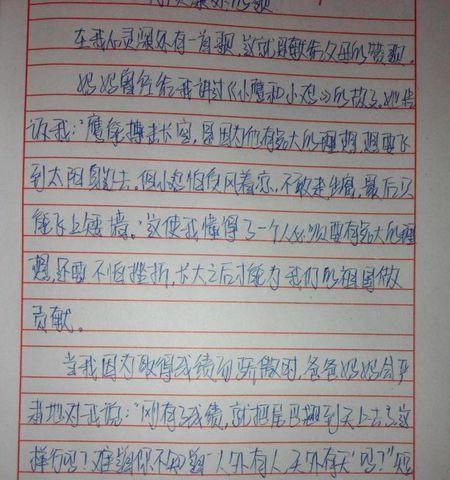 心灵深处的歌
在我心灵深处有一首歌,这就是献给父母的赞歌。
妈妈曾经给我讲过《小鹰和小鸡》的故事。她告
诉我:"鹰能搏击长空,是因为他有高大的理想,想要飞
到太阳身边去。但小鸡怕受风着凉,不敢走出窝,最后只
能飞上矮墙。"这使我懂得了一个人必须要有高大的理
想,还要不怕挫折,长大之后才能为我们的祖国做
贡献。
当我因为取得成绩而骄傲时,爸爸妈妈会严
肃地对我说:"刚有了成绩,就把尾巴翘到天上去了,这
样行吗?难道你不知道'人外有人,天外有天'吗?"短